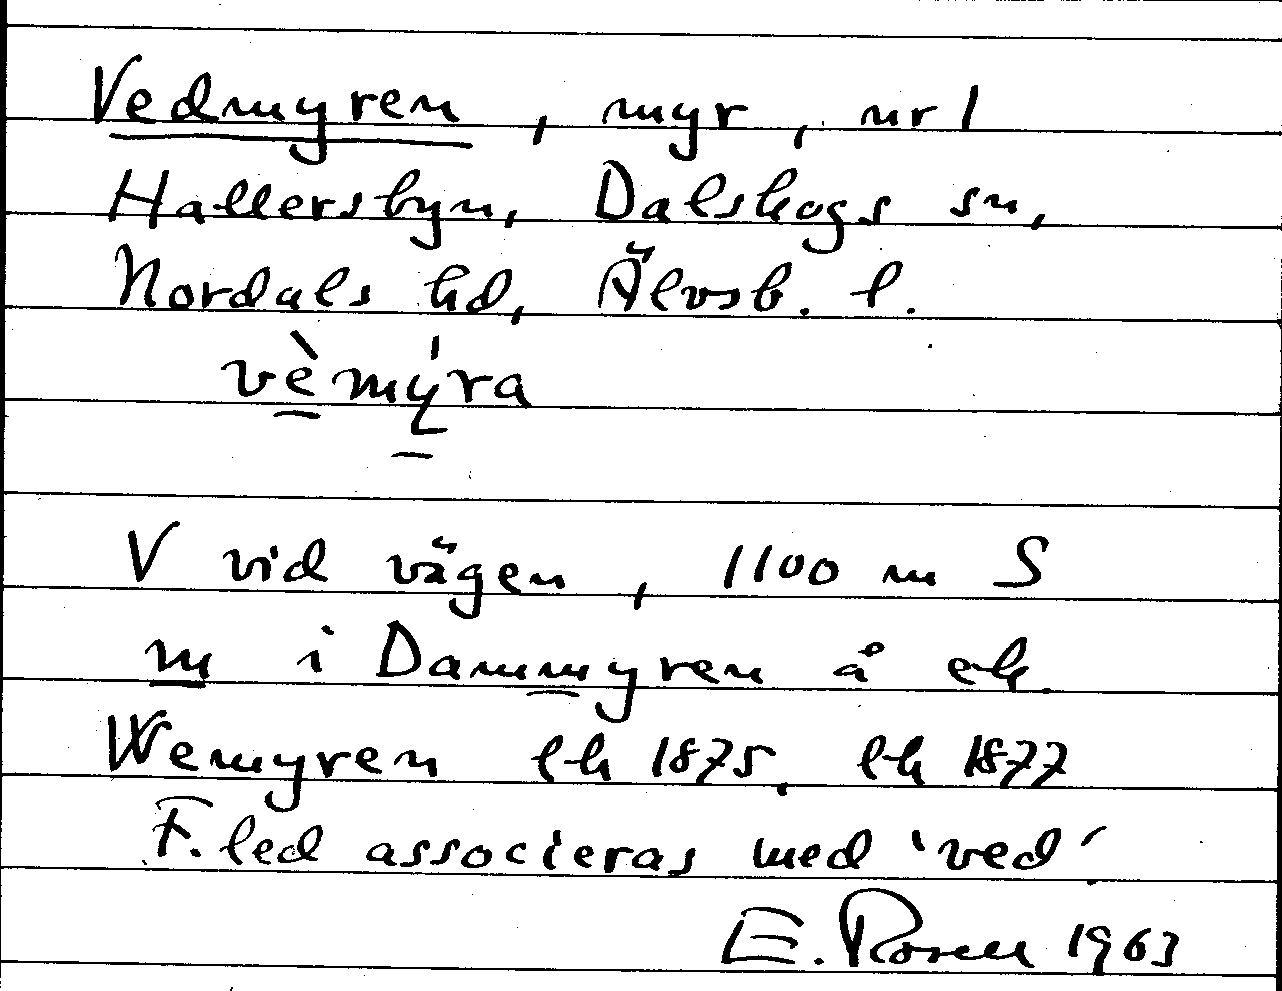 Vedmyren, myr, nr 1
Hallersbyn, Dalskogs sn,
Nordals hd, Älvsb. l.
vèmýra
V vid vägen, 1100 m S
m i Dammyren å ek.
Wemyren lk 1875, lk 1877
F. led associeras med 'ved'.
E. Rosell 1963